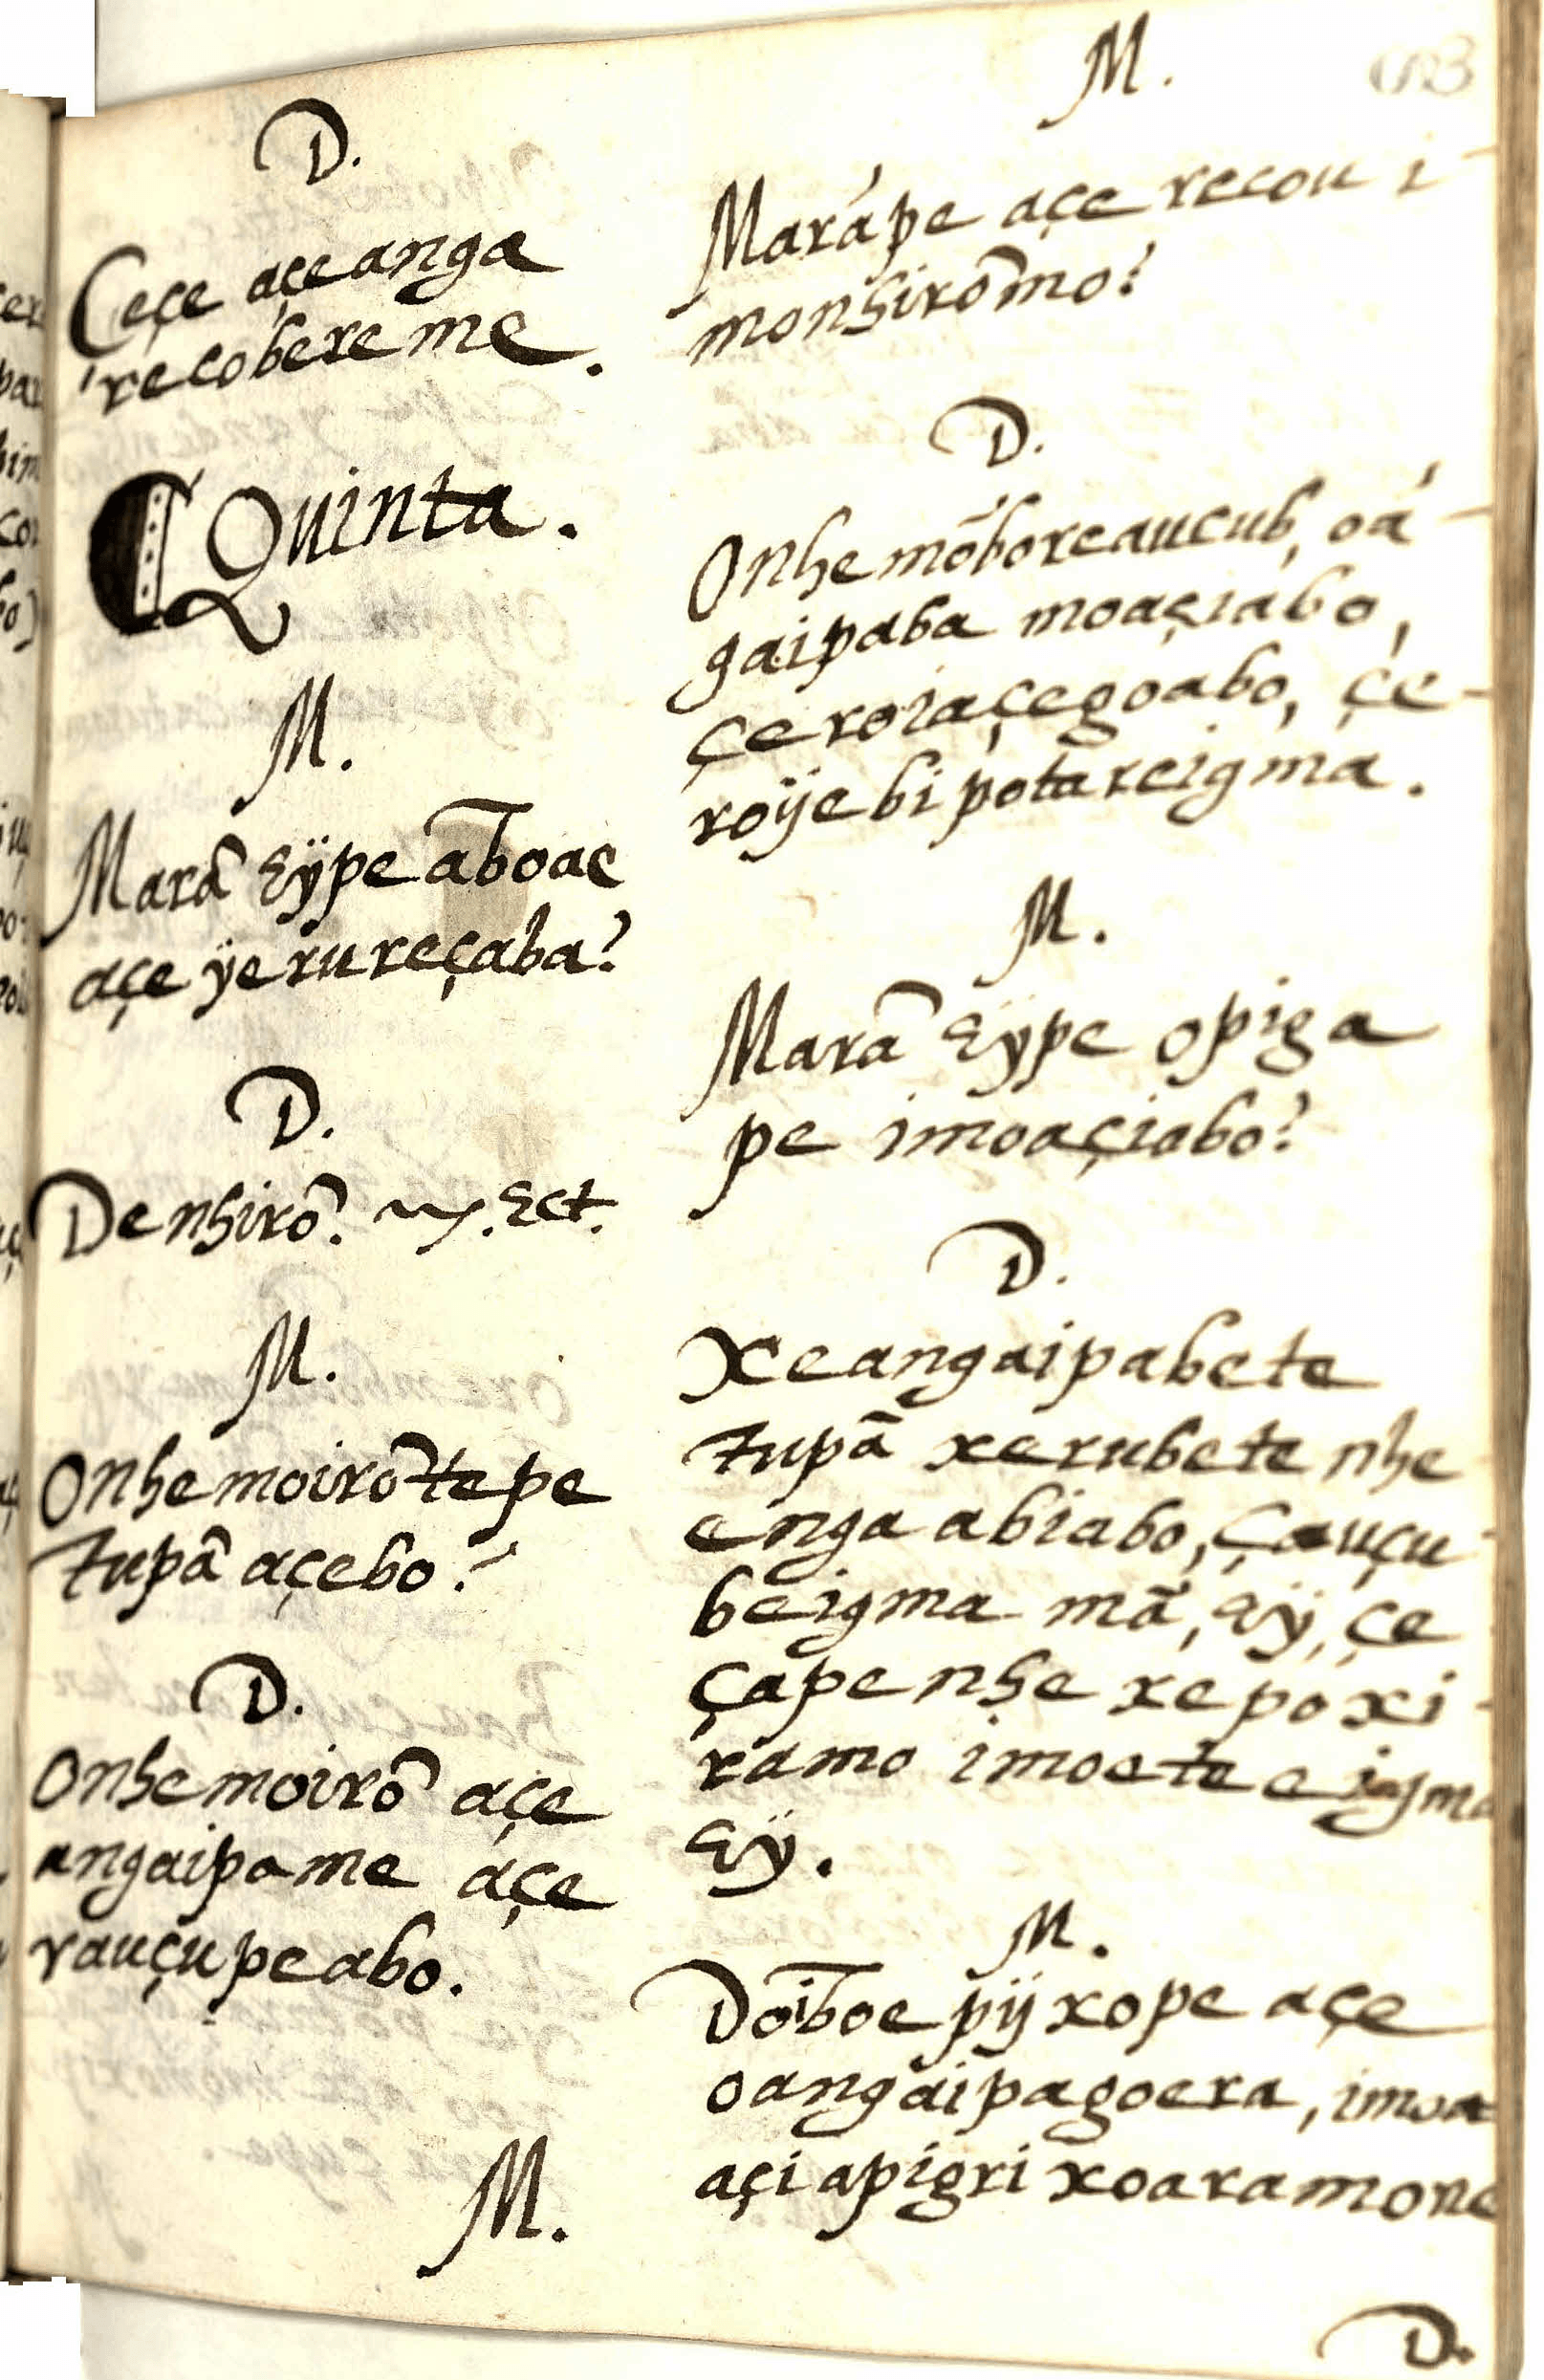 D.
Ceçe açeanga
recobereme.
Quinta.
M.
Marã Eÿpe aboac
açe ÿerureçaba?
D.
Denhirõ. Ect.
M.
Onhemoirõtepe
tupã açebo?
D.
Onhemoirõ açe
angaipame açe
rauçupeabo.
M.
M.
Marápe açe recou i-
monhirõmo?
D.
Onhemõboreaucub, oá-
gaipaba moaçiabo,
çeroiaçegoabo, çe-
roÿebipotareigma.
M.
Marã Eÿpe opiga
pe imoaçiabo?
D.
Xeangaipabete
tupã xerubete nhe
enga abiabo, çauçu-
beigma mã, Eÿ, çe
çape nhe xepoxi-
ramo imoeteeigma
Eÿ.
M.
Doiboe pÿxope açe
oangaipagoera, imoa
açi apigri xoaramone
D.